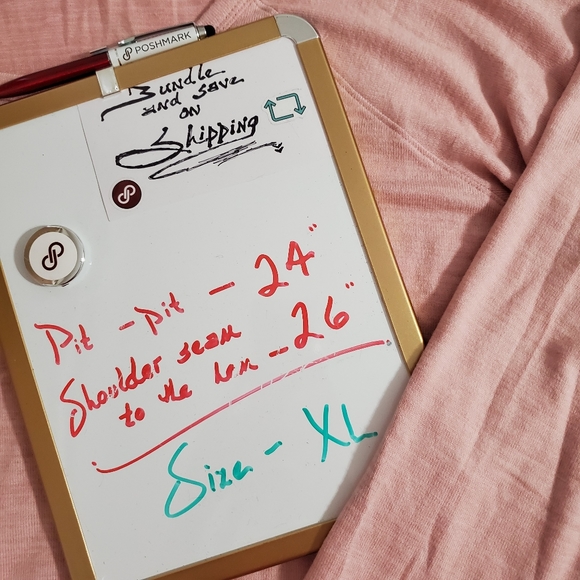 POSHMARK
Bundle
and save
on
Shipping
Pit - pit - 24"
Shoulder seam
to the hem -- 26"
Size - XL